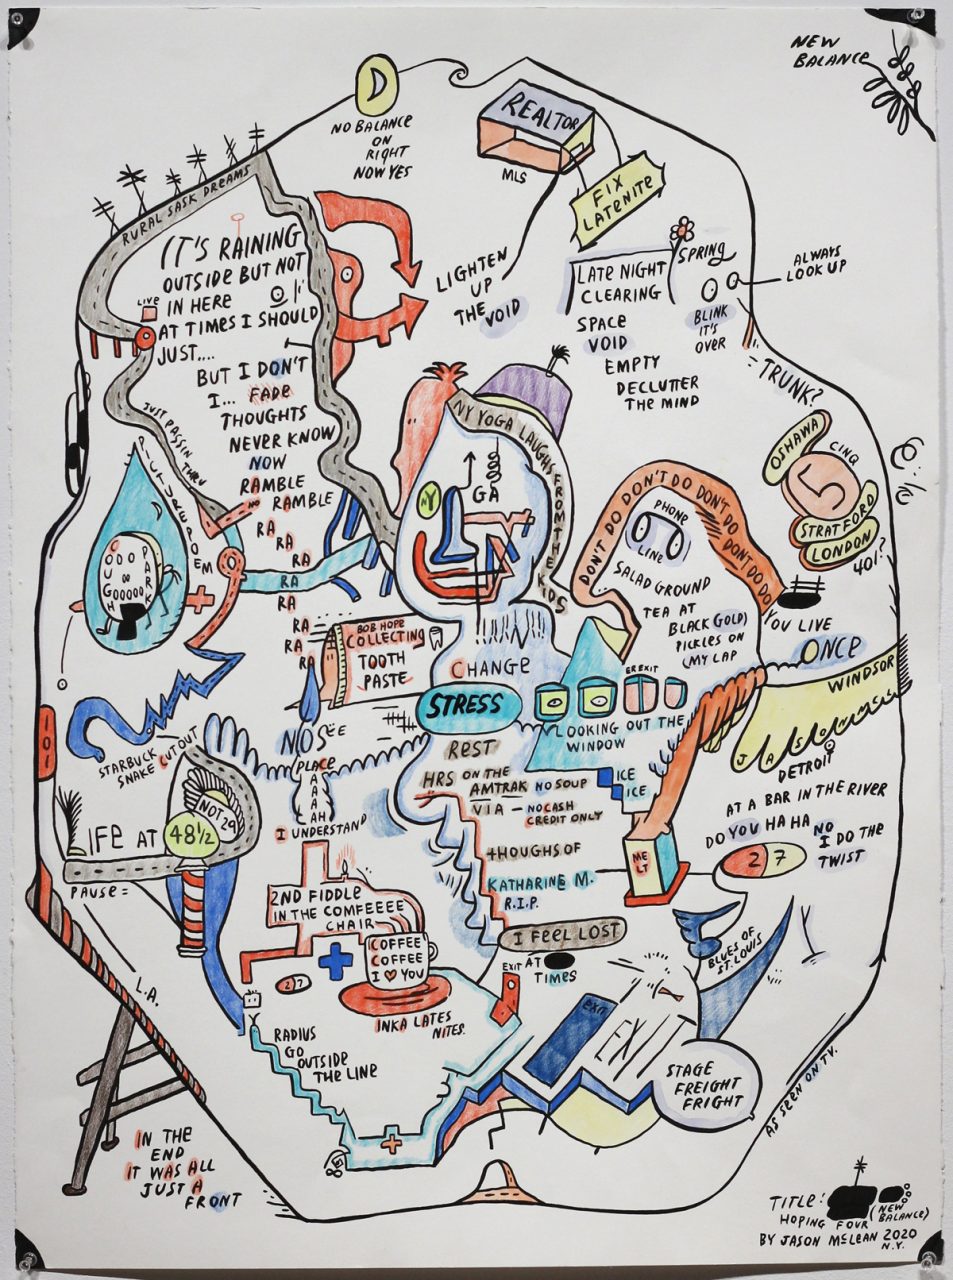 NEW
BALANCE
NO BALANCE
ON
RIGHT
NOW YES
REALTOR
MLS
FIX
LATENITE
RURAL SASK DREAMS
IT'S RAINING
OUTSIDE BUT NOT
IN HERE
LIVE
AT TIMES I SHOULD
JUST....
BUT I DON'T
I... FADE
THOUGHTS
NEVER KNOW
NOW
RAMBLE
NO RAMBLE
RA
RA
RA
RA
RA
RA
RA
RA
LIGHTEN
UP
THE VOID
LATE NIGHT
CLEARING
SPRING
SPACE
VOID
EMPTY
DECLUTTER
THE MIND
ALWAYS
LOOK UP
BLINK
IT'S
OVER
= TRUNK?
JUST PASSIN THRU
PICTUREPOEM
COUGH
PARK
NY YOGA LAUGHS FROM THE KIDS
NY
GA
OSHAWA
CINQ
5
STRATFORD
LONDON
401?
DON'T DO DON'T DO DON'T DO DON'T DO DO
PHONE
LINE
SALAD GROUND
TEA AT
BLACK GOLD)
PICKLES ON
MY LAP
YOU LIVE
ONCE
WINDSOR
BOB HOPE
COLLECTING
TOOTH
PASTE
CHANGE
STRESS
EREXIT
LOOKING OUT THE
WINDOW
JASON
DETROIT
NO SEE
PLACE
AAAAAH
I UNDERSTAND
STARBUCK
SNAKE CUT OUT
101
REST
HRS ON THE
AMTRAK NO SOUP
VIA — NO CASH
CREDIT ONLY
ICE
ICE
AT A BAR IN THE RIVER
DO YOU HA HA NO
I DO THE
TWIST
27
NOT 29
LIFE AT 48½
PAUSE =
4HOUGHS OF
KATHARINE M.
R.I.P.
MELT
2ND FIDDLE
IN THE COMFEEEE
CHAIR
COFFEE
COFFEE
I ♥ YOU
27
INKA LATES
NITES.
I FEEL LOST
AT
TIMES
EXIT
BLUES OF
ST. LOUIS
L.A.
RADIUS
GO
OUTSIDE
THE LINE
EXIT
EXIT
STAGE
FREIGHT
FRIGHT
AS SEEN ON TV.
IN THE
END
IT WAS ALL
JUST A
FRONT
TITLE:
HOPING FOUR (NEW BALANCE)
BY JASON MCLEAN 2020
N.Y.